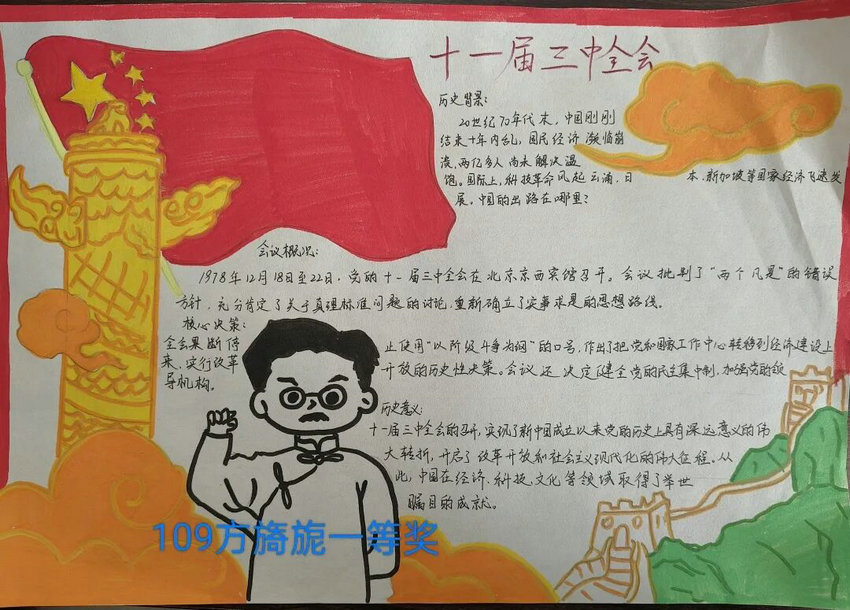 十一届三中全会
历史背景：
20世纪70年代末，中国刚刚
结束十年内乱，国民经济濒临崩
溃，两亿多人尚未解决温
饱。国际上，科技革命风起云涌，日本、新加坡等国家经济飞速发
展，中国的出路在哪里？
会议概况：
1978年12月18日至22日，党的十一届三中全会在北京京西宾馆召开。会议批判了“两个凡是”的错误
方针，充分肯定了关于真理标准问题的讨论，重新确立了实事求是的思想路线。
核心决策：
全会果断停止使用“以阶级斗争为纲”的口号，作出了把党和国家工作中心转移到经济建设上
来，实行改革开放的历史性决策。会议还决定健全党的民主集中制，加强党的领
导机构。
历史意义：
十一届三中全会的召开，实现了新中国成立以来党的历史上具有深远意义的伟
大转折，开启了改革开放和社会主义现代化的伟大征程。从
此，中国在经济、科技、文化等领域取得了举世
瞩目的成就。
109方旖旎一等奖